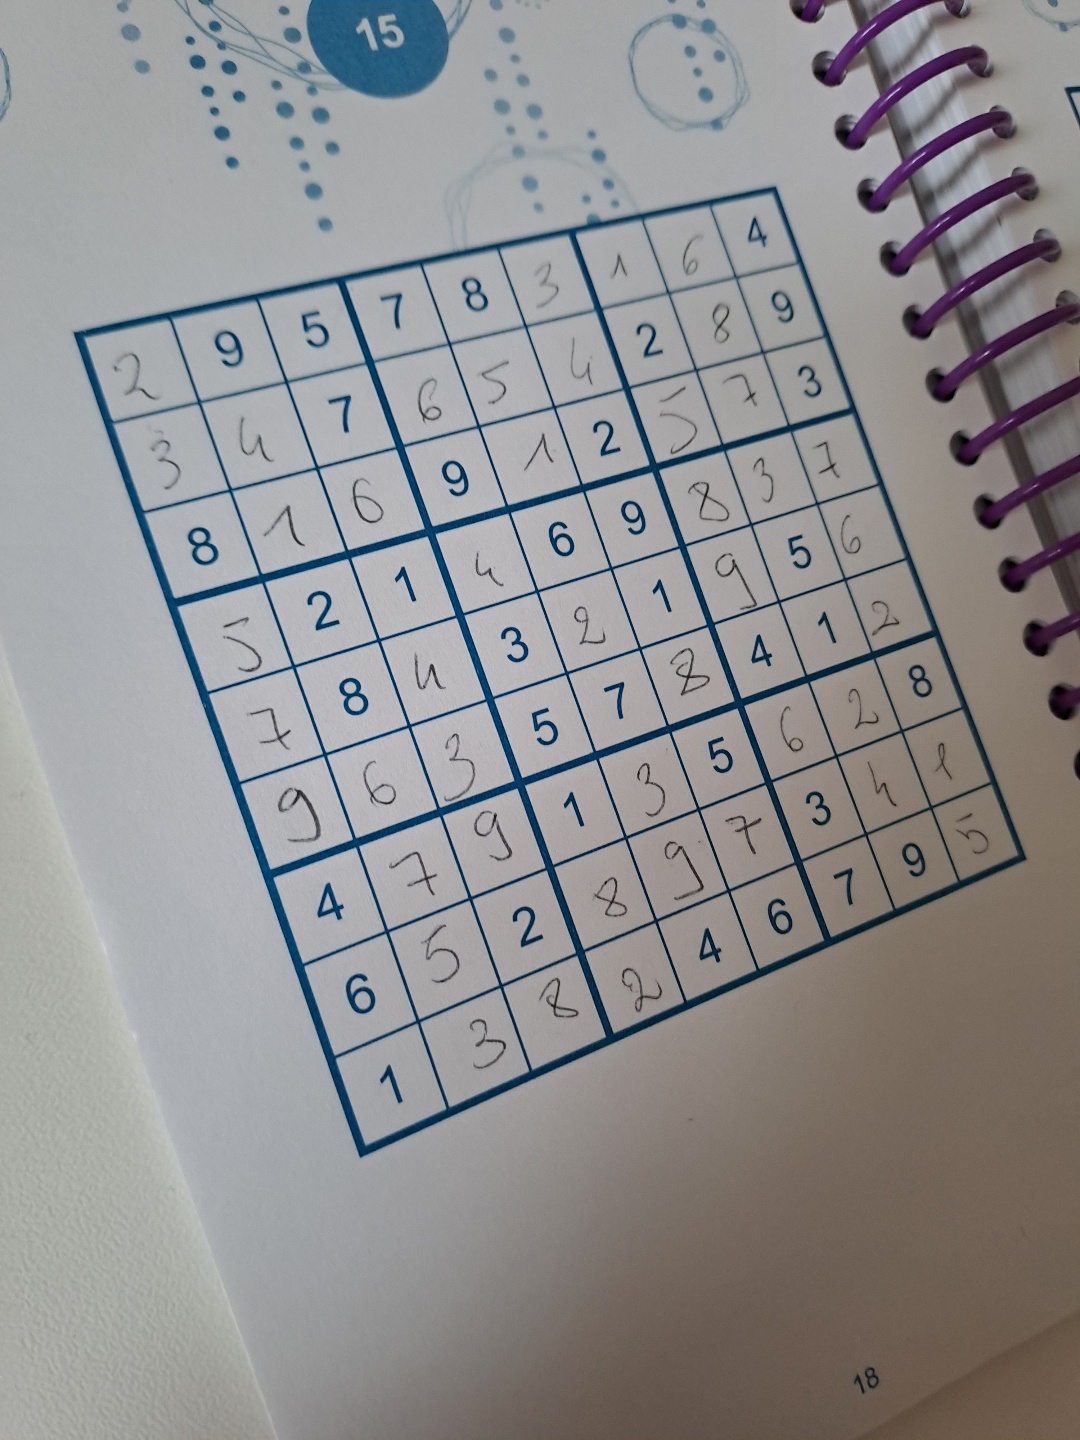 15
2 9 5 7 8 3 1 6 4
3 4 7 6 5 4 2 8 9
8 1 6 9 1 2 5 7 3
5 2 1 4 6 9 8 3 7
7 8 4 3 2 1 9 5 6
9 6 3 5 7 8 4 1 2
4 7 9 1 3 5 6 2 8
6 5 2 8 9 7 3 4 1
1 3 8 2 4 6 7 9 5
18